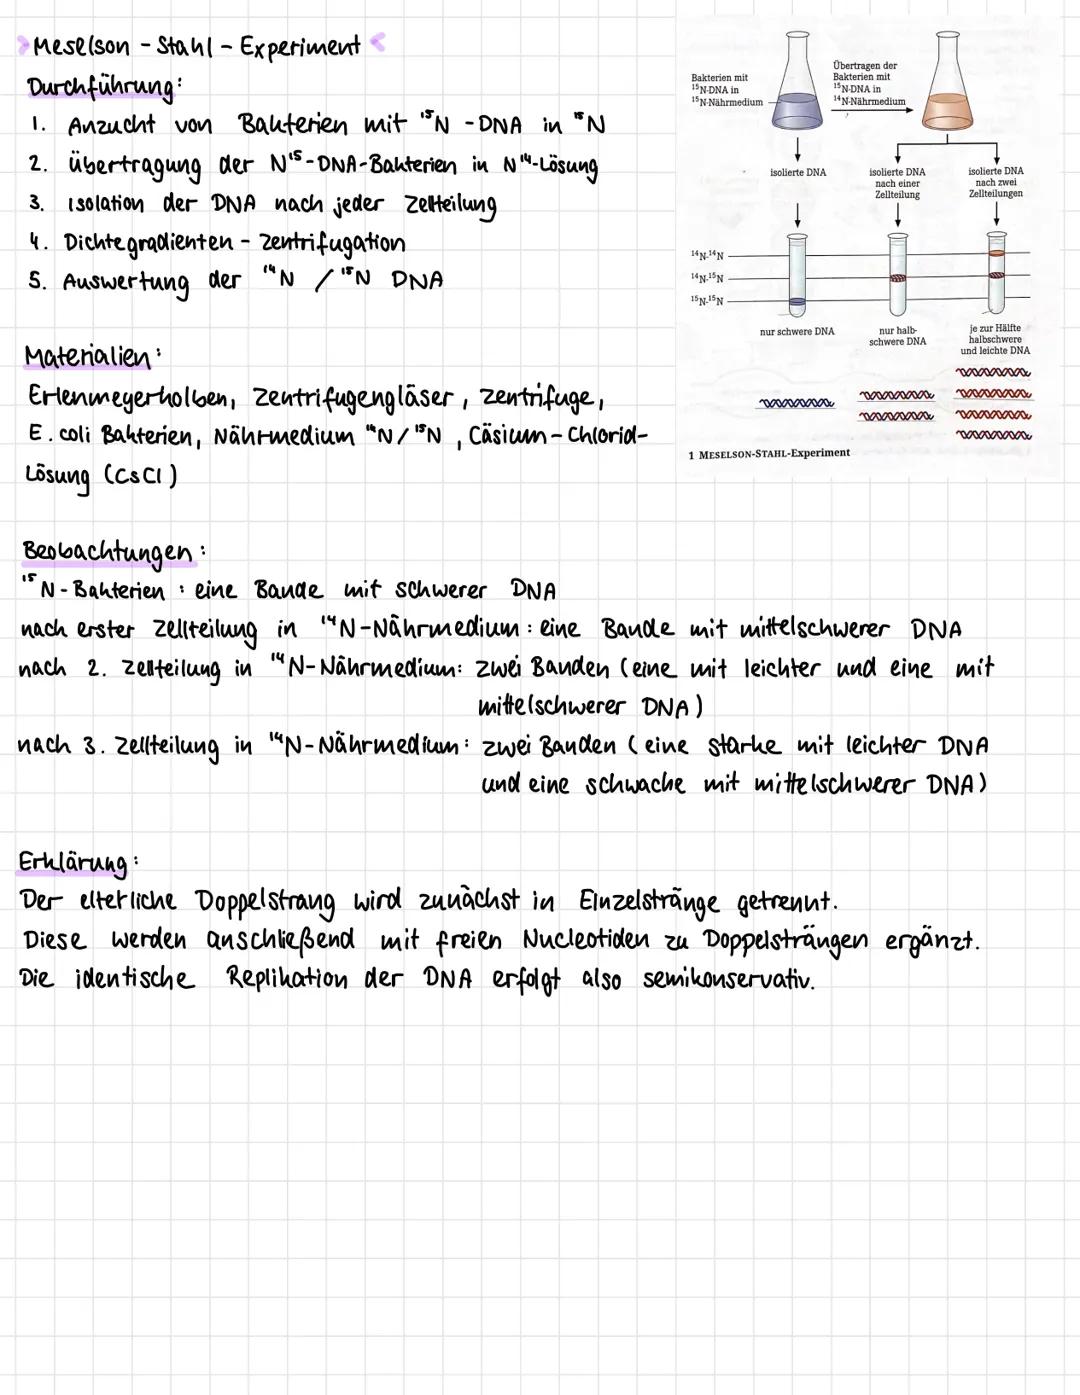 Meselson - Stahl - Experiment
Durchführung:
1. Anzucht von Bakterien mit ¹⁵N - DNA in ¹⁵N
2. Übertragung der N¹⁵-DNA-Bakterien in N¹⁴-Lösung
3. Isolation der DNA nach jeder Zellteilung
4. Dichtegradienten - Zentrifugation
5. Auswertung der ¹⁴N / ¹⁵N DNA
Materialien:
Erlenmeyerkolben, Zentrifugengläser, Zentrifuge,
E. coli Bakterien, Nährmedium ¹⁴N/¹⁵N, Cäsium-Chlorid-
Lösung (CsCl)
Bakterien mit
¹⁵N-DNA in
¹⁵N-Nährmedium
Übertragen der
Bakterien mit
¹⁵N-DNA in
¹⁴N-Nährmedium
isolierte DNA
isolierte DNA
nach einer
Zellteilung
isolierte DNA
nach zwei
Zellteilungen
¹⁴N-¹⁴N
¹⁴N-¹⁵N
¹⁵N-¹⁵N
nur schwere DNA
nur halb-
schwere DNA
je zur Hälfte
halbschwere
und leichte DNA
1 MESELSON-STAHL-Experiment
Beobachtungen:
¹⁵N-Bakterien : eine Bande mit schwerer DNA
nach erster Zellteilung in ¹⁴N-Nährmedium : eine Bande mit mittelschwerer DNA
nach 2. Zellteilung in ¹⁴N-Nährmedium: zwei Banden (eine mit leichter und eine mit
mittelschwerer DNA)
nach 3. Zellteilung in ¹⁴N-Nährmedium: zwei Banden (eine starke mit leichter DNA
und eine schwache mit mittelschwerer DNA)
Erklärung:
Der elterliche Doppelstrang wird zunächst in Einzelstränge getrennt.
Diese werden anschließend mit freien Nucleotiden zu Doppelsträngen ergänzt.
Die identische Replikation der DNA erfolgt also semikonservativ.